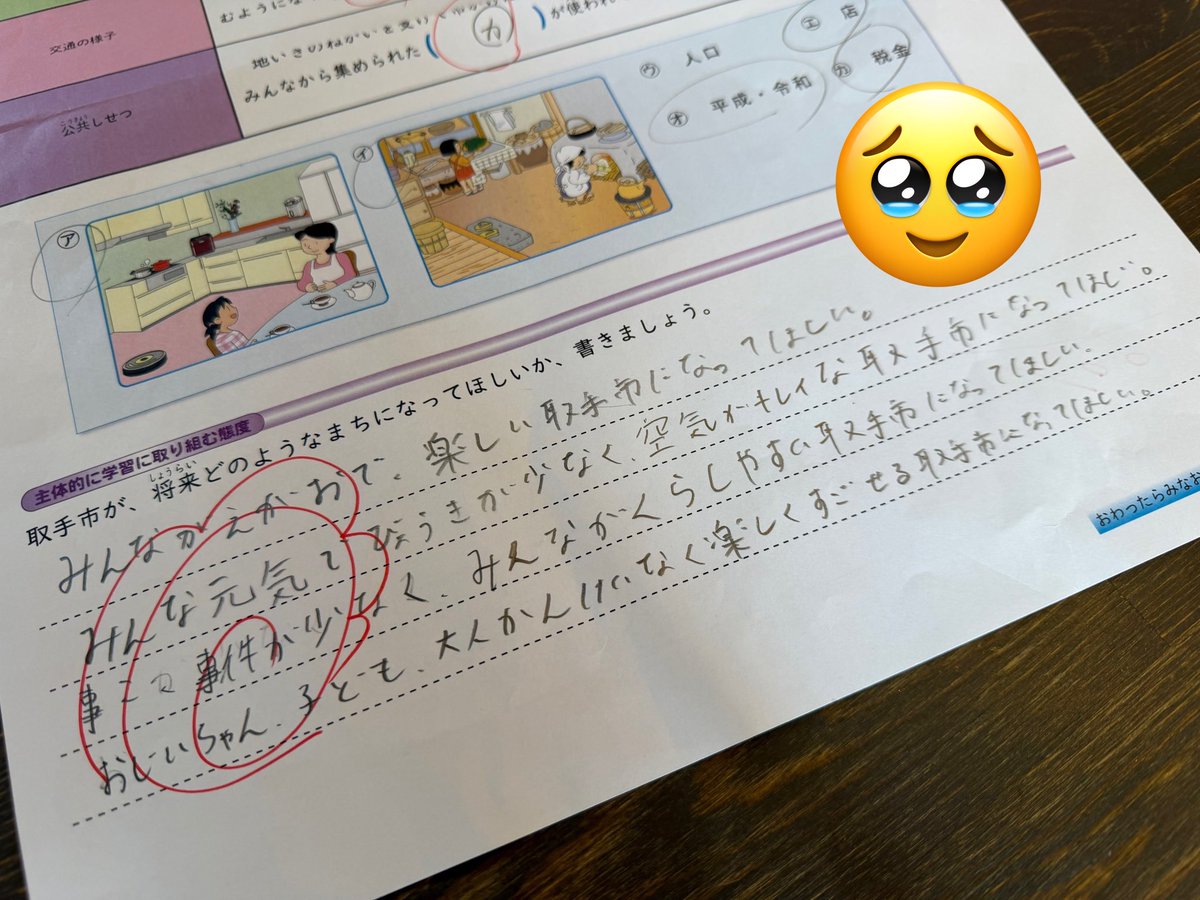 むように
交通の様子
地いきのねがいを受け
みんなから集められた( カ )が使われ
公共しせつ
こうきょう
ア
イ
ウ 人口
エ 店
オ 平成・令和
カ 税金
主体的に学習に取り組む態度
取手市が、将来どのようなまちになってほしいか、書きましょう。
しょうらい
みんながえがおで、楽しい取手市になってほしい。
みんな元気で、びょうきが少なく、空気がキレイな取手市になってほしい。
事こや事件が少なく、みんながくらしやすい取手市になってほしい。
おじいちゃん、子ども、大人かんけいなく楽しくすごせる取手市になってほしい。
おわったらみなお